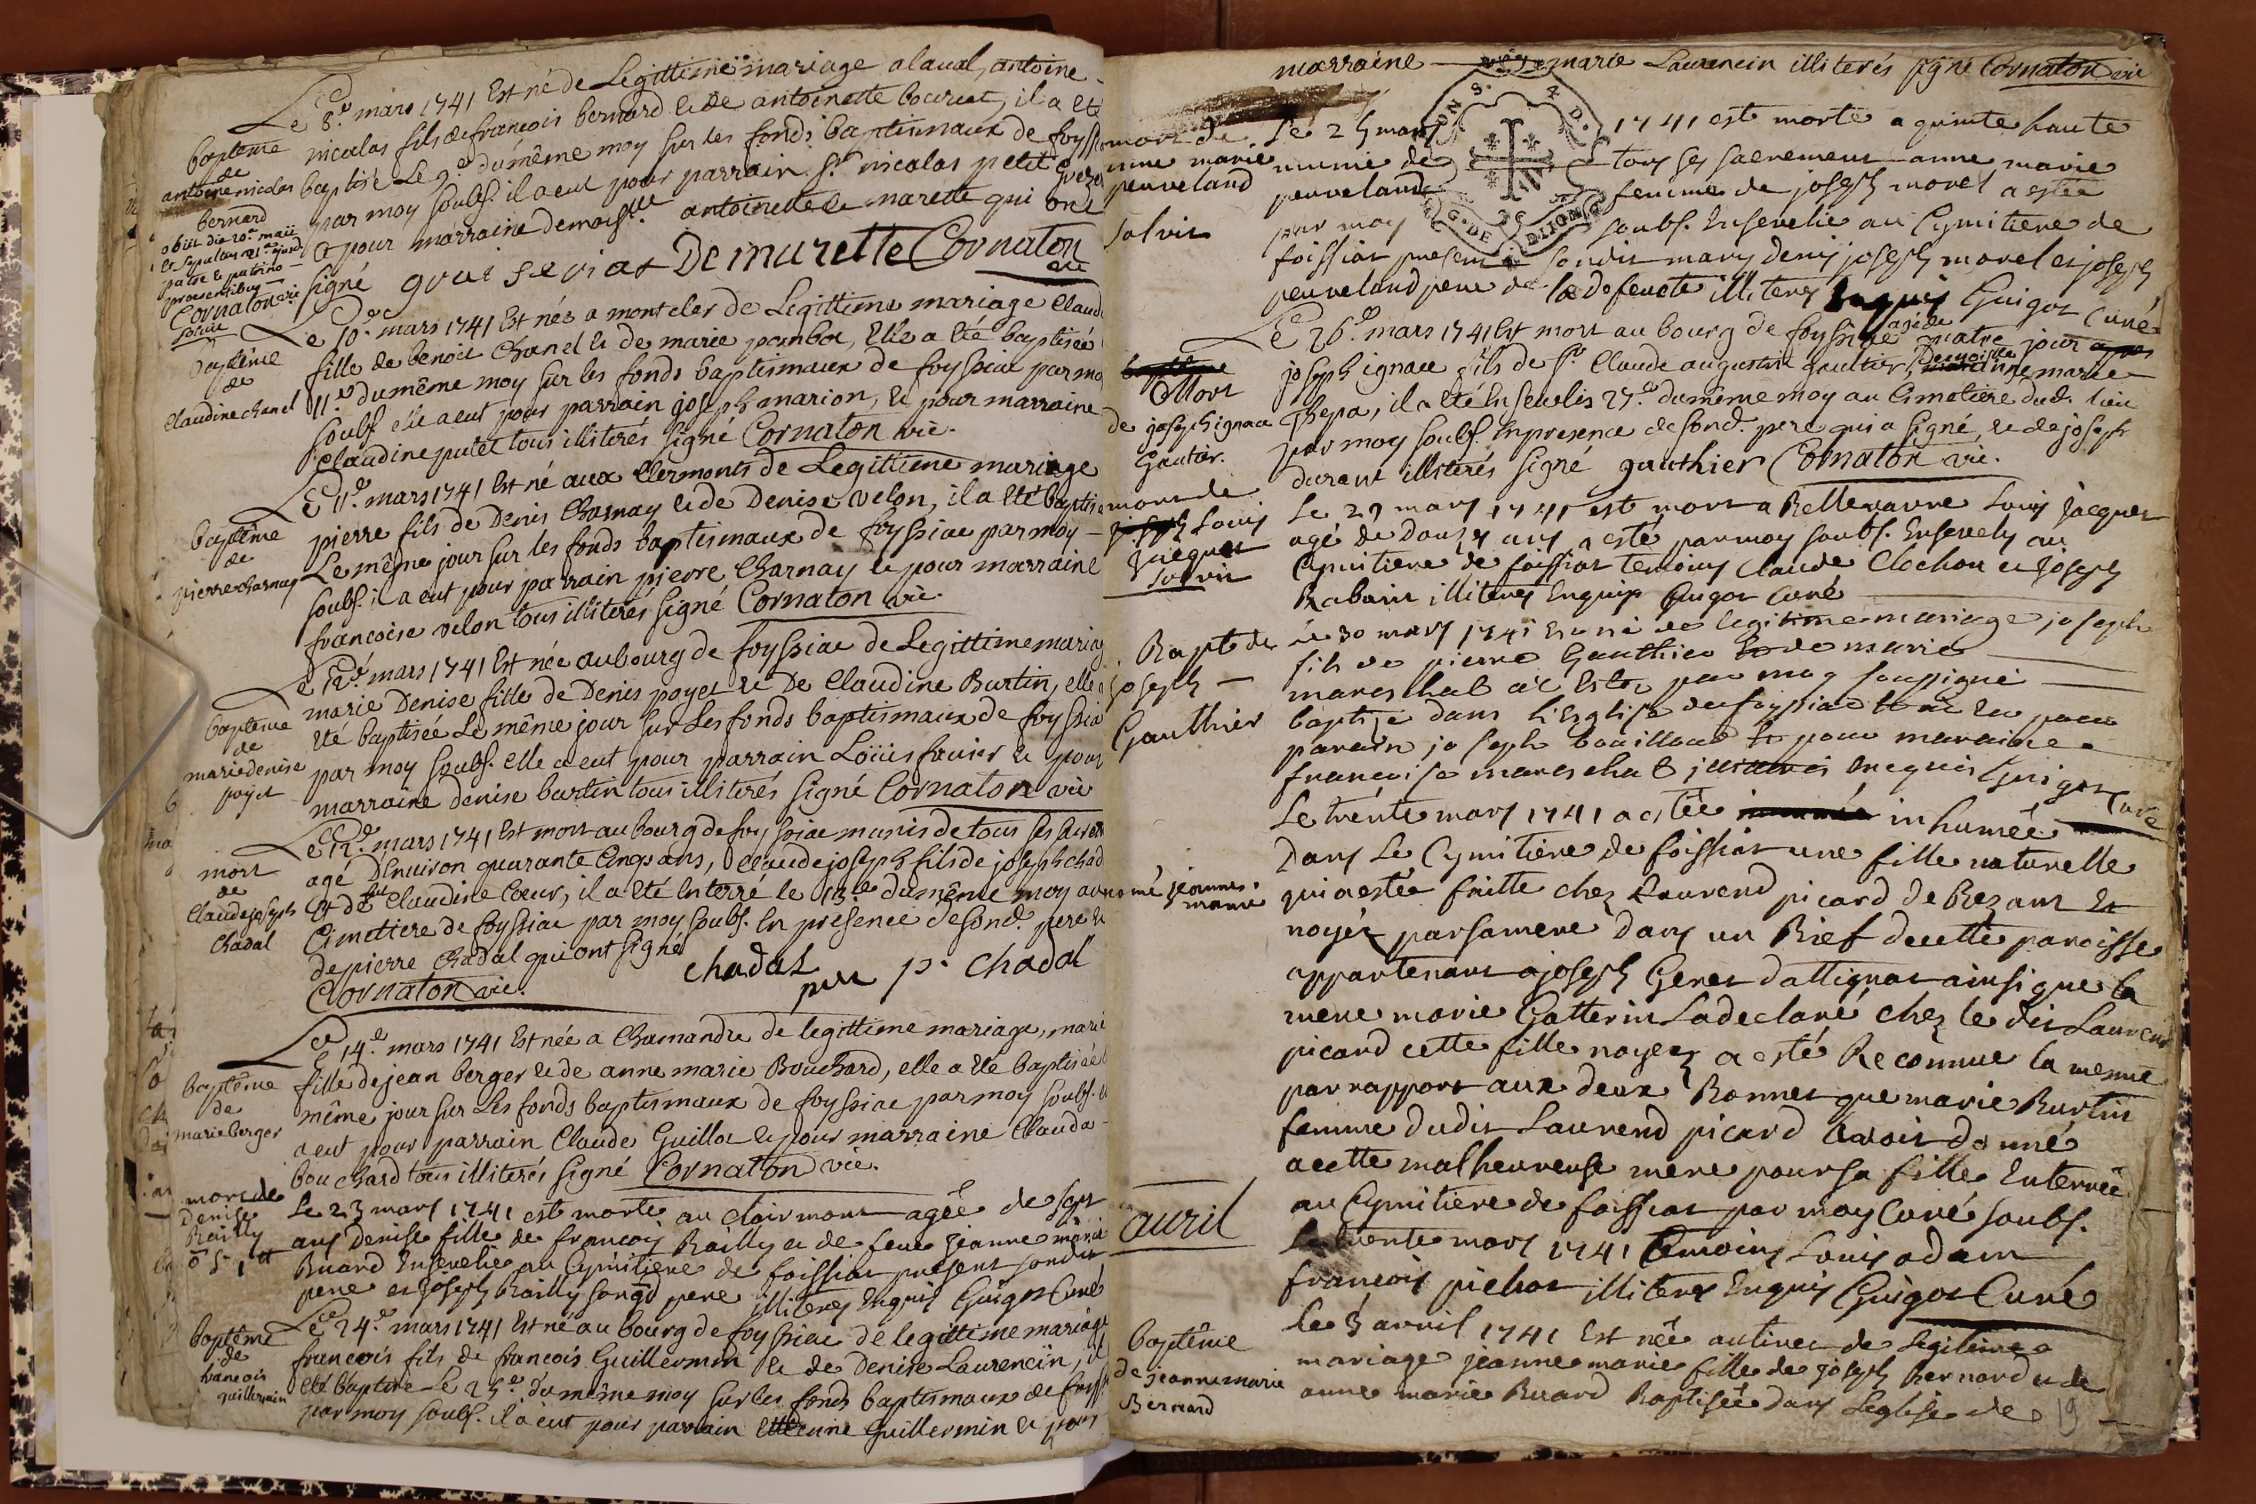 Le 8.e mars 1741 Est né de Legittime mariage alaval, antoine
nicolas fils de francois bernard & de antoinette bouvent, il a eté
baptisé Le 9.e du même moy sur les fonds baptismaux de foyss
par moy soubs. il a eut pour parrain S.r nicolas petit
& pour marraine demois.lle antoinette de marette qui ont
signé De murette Cornaton vic
baptême
de
antoine nicolas
bernard
obiit die 20.a maii
patre & patrino
praesentibus
Cornaton vic
Le 10.e mars 1741 Est née a montcler de Legittime mariage Claud
fille de benoit Chanel & de marie panbot, Elle a eté baptisée
11.e du même moy sur les fonds baptismaux de foyssiac par mo
soubs. elle a eut pour parrain joseph marion, & pour marraine
Claudine putet tous illiterés signé Cornaton vic.
baptême
de
Claudine chanel
Le 11.e mars 1741 Est né aux Clermonts de Legittime mariage
pierre fils de Denis Charnay & de Denise velon, il a eté baptisé
Le même jour sur les fonds baptismaux de foyssiac par moy
soubs. il a eut pour parrain pierre Charnay & pour marraine
francoise velon tous illiterés signé Cornaton vic.
baptême
de
pierre charnay
Le 12.e mars 1741 Est née au bourg de foyssiac de Legittime mariag
marie Denise fille de Denis poyet & De Claudine Burtin, elle a
eté baptisée Le même jour sur Les fonds baptismaux de foyssia
par moy soubs. elle a eut pour parrain Loüis favier & pour
marraine denise burtin tous illiterés signé Cornaton vic
baptême
de
marie denise
poyet
Le 12.e mars 1741 Est mort au bourg de foyssiac munis de tous ses
agé D'Environ quarante Cinq ans, Claude joseph fils de joseph chad
& de Claudine Cœur, il a eté Enterré le 13.e du même moy au
Cimettiere de foyssiac par moy soubs. En presence de son d. pere &
de pierre Chadal qui ont signé
Cornaton vic. chadal p. chadal
mort
de
Claude joseph
Chadal
Le 14.e mars 1741 Est née a Chamandre de legittime mariage, marie
fille de jean berger & de anne marie Bouchard, elle a eté baptisée
même jour sur Les fonds baptismaux de foyssiac par moy soubs.
a eut pour parrain Claude Guillot & pour marraine Clauda
bouchard tous illiterés signé Cornaton vic.
baptême
de
marie berger
Le 23 mars 1741 est morte au clairmont agée de sept
ans Denise fille de francois Railly et de feue jeanne marie
Buard Ensevelie au Cymitiere de foissiat present son dit
pere et joseph Railly son g.d pere illiteres Enquis Guigot Curé
mort de
Denise
Railly
Le 24.e mars 1741 Est né au bourg de foyssiac de legittime mariage
francois fils de francois Guillermin & de Denise Laurencin, il
eté baptisé Le 25.e du même moy sur les fonds baptismaux de foyss
par moy soubs. il a eut pour parrain Etienne Guillermin & pour
baptême
de
francois
guillermin
marraine marie Laurencin illiterés signé Cornaton vic
Le 25 mars 1741 est morte a quinte haute
munie de tous ses sacremens anne marie
peuveland femme de joseph morel a estée
par moy soubs. Ensevelie au Cymitiere de
foissiat present son dit mary denis joseph morel et joseph
peuveland pere de la defuncte illiteres Enquis Guigot Curé
mort de
anne marie
peuveland
solvit
Le 26.e mars 1741 Est mort au bourg de foyssiac agé de quatre jour
joseph ignace fils de S.r Claude augustin Gautier, Demoiselle marie
Chepa, il a eté Enseveli le 27.e du même moy au Cimetiere dud. lieu
par moy soubs. En presence de son d. pere qui a signé, & de joseph
durant illiterés signé gauthier Cornaton vic.
Mort
de joseph ignace
Gautier.
Le 29 mars 1741 est mort a Bellevavre Louis Jacquet
agé de douze ans a esté par moy soubs. Ensevely au
Cymitiere de foissiat temoins Claude Clochon et Joseph
Rabain illiteres Enquis Guigot Curé
mort de
Louis
Jacquet
solvit
Le 30 mars 1741 Est né de legitime mariage joseph
fils de pierre Gauthier & de marie
mareschal a Esté par moy soussigné
baptisé dans l'Esglise de foyssiac & a Eu pour
parain joseph bouilloud & pour maraine
francoise mareschal illiterés Enquis Guigot Curé
Bapt de
joseph
Gauthier
Le trente mars 1741 a estée inhumée
Dans Le Cymitiere de foissiat une fille naturelle
qui a estée faitte chez Laurend picard de Bezant Et
noyée par sa mere dans un Bief de cette paroisse
appartenant a joseph Geret d'attignat ainsi que la
mere marie Gatterin L'a declaré chez le dit Laurend
picard cette fille noyee a esté Reconnue la meme
par rapport aux deux Bonnet que marie Burtin
femme dudit Laurend picard avoit donné
a cette malheureuse mere pour sa fille Enterrée
au Cymitiere de foissiat par moy Curé soubs.
Le trente mars 1741 temoins Louis adam
francois pichot illiteres Enquis Guigot Curé
nomé jeanne
marie
avril
Le 3 avril 1741 Est née au tiret de Legitime
mariage jeanne marie fille de joseph Bernard et de
anne marie Buard Baptisée dans L'eglise de
baptême
de jeanne marie
Bernard
19